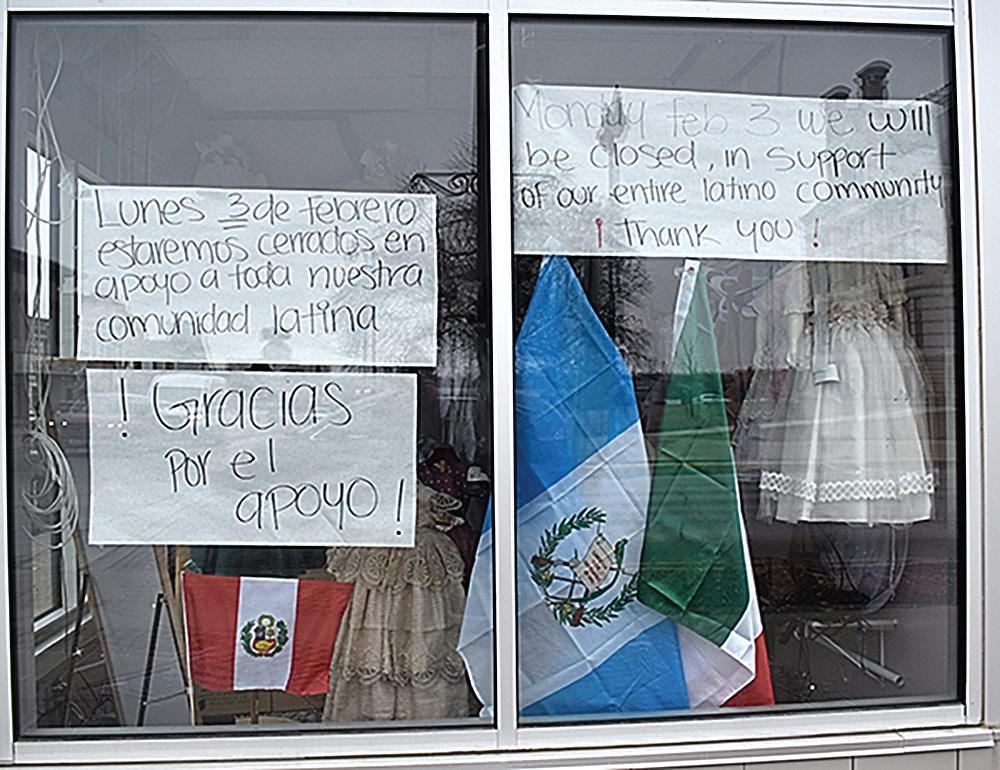 Lunes 3 de febrero
estaremos cerrados en
apoyo a toda nuestra
comunidad latina
! Gracias
por el
apoyo !
Monday Feb 3 we will
be closed, in support
of our entire latino community
¡ Thank you !